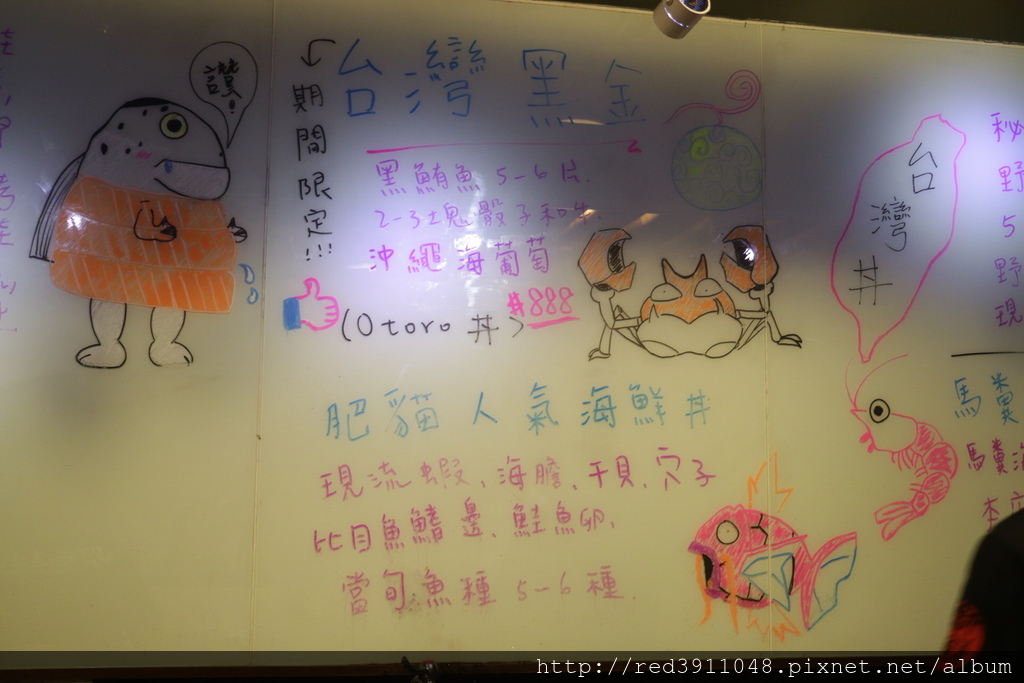 讚!
↙期間限定!!!
台灣黑金
黑鮪魚 5-6片.
2-3塊骰子和牛
沖繩海葡萄
(Otoro 丼) #888
肥貓人氣海鮮丼
現流蝦、海膽、干貝、穴子
比目魚鰭邊、鮭魚卵、
當旬魚種 5-6種.
台灣丼
秘
野
5
野
現
馬糞
馬糞海
http://red3911048.pixnet.net/album